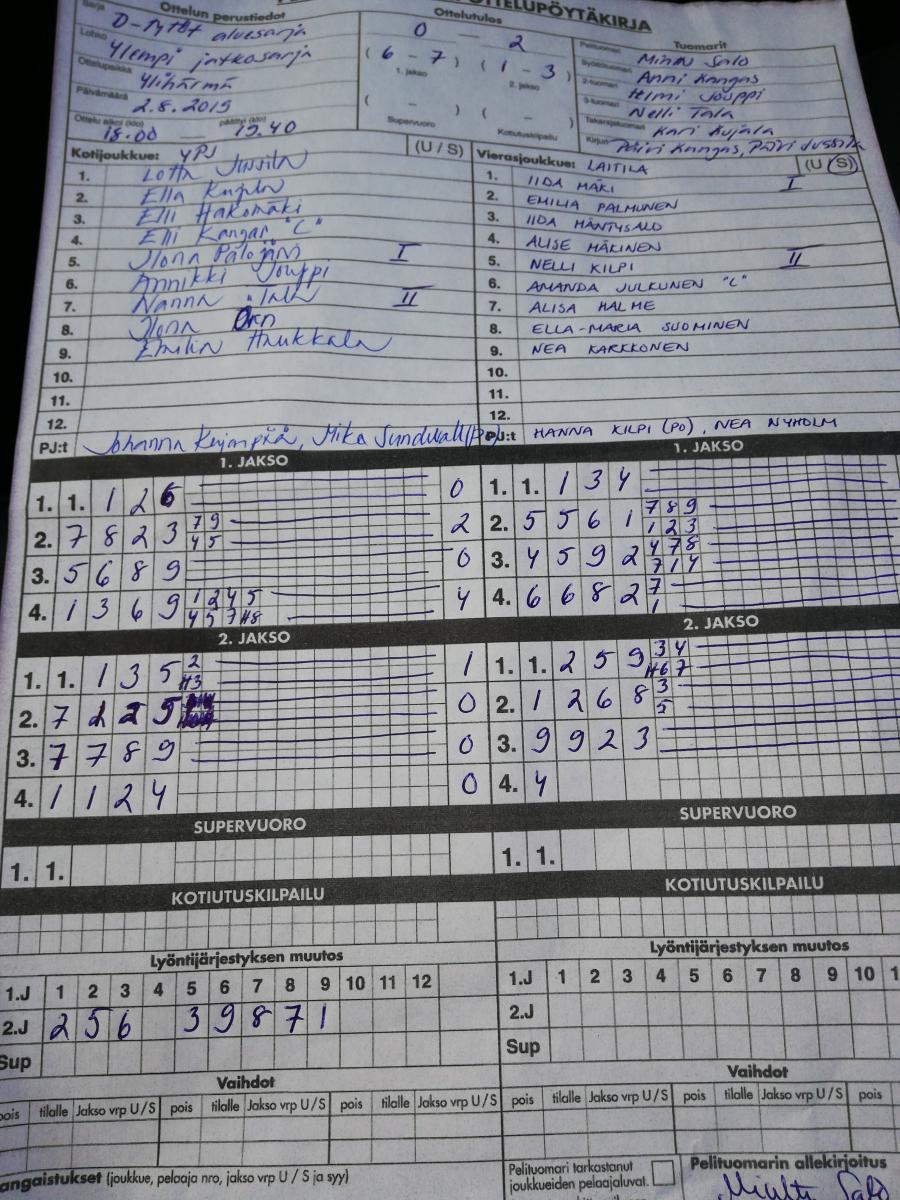 OTTELUPÖYTÄKIRJA
Ottelun perustiedot
Sarja D-tytöt aluesarja
Lohko Ylempi jatkosarja
Ottelupaikka Ylihärmä
Päivämäärä 2.8.2015
Ottelu alkoi (klo) 18.00 päättyi (klo) 19.40
Ottelutulos
0 – 2
(6 – 7) (1 – 3)
1. jakso 2. jakso
( – ) ( – )
Supervuoro Kotiutuskilpailu
Tuomarit
Pelituomari Salo
Syöttötuomari Anni Kangas
2-tuomari Helmi Jouppi
3-tuomari Nelli Tala
Takarajatuomari Kari Kujala
Kirjuri Päivi Kangas, Päivi Jussila
Kotijoukkue: YPJ (U / S)
1. Lotta Jussila
2. Ella Kujala
3. Elli Hakomäki
4. Elli Kangas "C"
5. Ilona Palojärvi I
6. Annikki Jouppi
7. Nanna Tala II
8. Ilona
9. Emilia Haukkala
10.
11.
12.
PJ:t Johanna Mika Sundwall (Po)
Vierasjoukkue: LAITILA (U / S)
1. IIDA MÄKI I
2. EMILIA PALMUNEN
3. IIDA MÄNTYSALO
4. ALISE MÄKINEN
5. NELLI KILPI II
6. AMANDA JULKUNEN "C"
7. ALISA HALME
8. ELLA-MARIA SUOMINEN
9. NEA KARKKONEN
10.
11.
12.
PJ:t HANNA KILPI (PO), NEA NYHOLM
1. JAKSO
1. 1. 1 2 6 0
2. 7 8 2 3 7 9 4 5 2
3. 5 6 8 9 0
4. 1 3 6 9 1 2 4 5 4 5 7 H8 4
1. JAKSO
1. 1. 1 3 4
2. 5 5 6 1 7 8 9 1 2 3
3. 4 5 9 2 4 7 8 7 1 4
4. 6 6 8 2 7 1
2. JAKSO
1. 1. 1 3 5 2 H3 1
2. 7 2 2 5 0
3. 7 7 8 9 0
4. 1 1 2 4 0
2. JAKSO
1. 1. 2 5 9 3 4 H6 7
2. 1 2 6 8 3 5
3. 9 9 2 3
4. 4
SUPERVUORO
1. 1.
SUPERVUORO
1. 1.
KOTIUTUSKILPAILU
KOTIUTUSKILPAILU
Lyöntijärjestyksen muutos
1.J 1 2 3 4 5 6 7 8 9 10 11 12
2.J 2 5 6 3 9 8 7 1
Sup
Lyöntijärjestyksen muutos
1.J 1 2 3 4 5 6 7 8 9 10
2.J
Sup
Vaihdot
pois tilalle Jakso vrp U / S pois tilalle Jakso vrp U / S pois tilalle Jakso vrp U / S
Vaihdot
pois tilalle Jakso vrp U / S pois tilalle Jakso vrp U / S pois
angaistukset (joukkue, pelaaja nro, jakso vrp U / S ja syy)
Pelituomari tarkastanut
joukkueiden pelaajaluvat.
Pelituomarin allekirjoitus
Salo